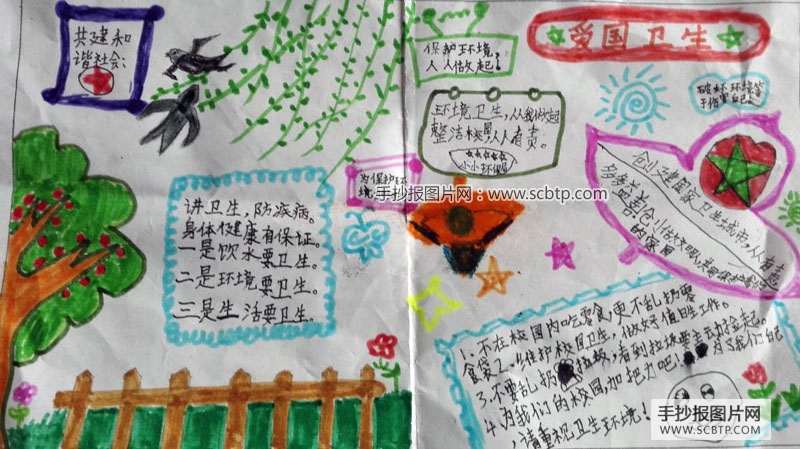 共建和
谐社会:
保护环境,
人人做起!
爱国卫生
破坏环境等
于伤害自己。
环境卫生,从我做起
整洁校園,人人有责。
小小环保
为保护环
境
手抄报图片网:www.scbtp.com
讲卫生,防疾病。
身体健康有保证。
一是饮水要卫生。
二是环境要卫生。
三是生活要卫生。
创建国家卫生城市,从
1、不在校园内吃零食,更不乱扔零
食袋2、维护校园卫生,做好值日生工作。
3、不要乱扔垃圾,看到垃圾要主动捡起。
4、为我们的校园,加把力吧!为我们自己
,请重视卫生环境!
手抄报图片网
WWW.SCBTP.COM